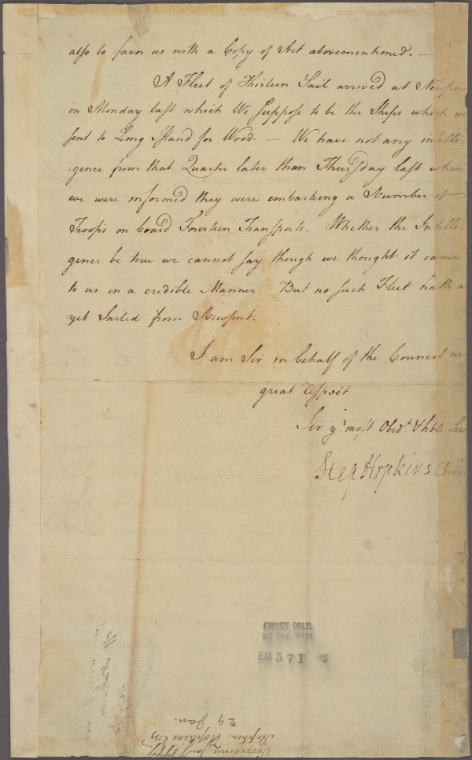 also to favor us with a Copy of Act abovementioned. —
A Fleet of Thirteen Sail arrived at Newport
on Monday last which We suppose to be the Ships which
sent to Long Island for Wood. — We have not any intelle-
gence from that Quarter later than Thursday last when
we were informed they were embarking a Number of
Troops on board Fourteen Transports. Whether the Intelle-
gence be true we cannot say though we thought it came
to us in a credible Manner. But no such Fleet hath as
yet Sailed from Newport.
I am Sir in behalf of the Council
great Respect
Sir yr. most Obedt. & hble
Step Hopkins
EM 571
29 Jan.
Stephen Hopkins